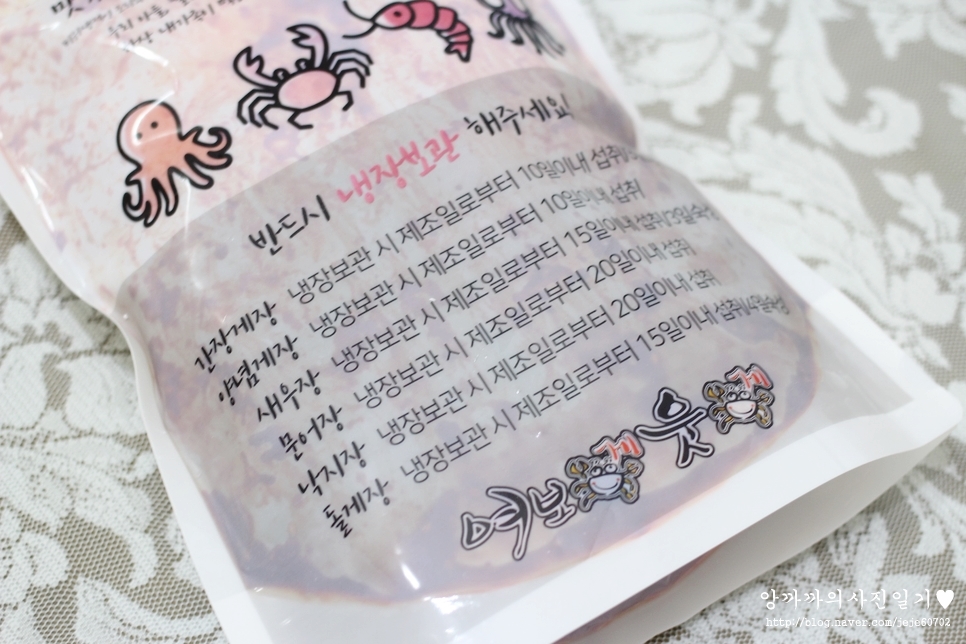 반드시 냉장보관 해주세요
간장게장 냉장보관 시 제조일로부터 10일이내 섭취
양념게장 냉장보관 시 제조일로부터 10일이내 섭취
새우장 냉장보관 시 제조일로부터 15일이내 섭취
문어장 냉장보관 시 제조일로부터 20일이내 섭취
낙지장 냉장보관 시 제조일로부터 20일이내 섭취
돌게장 냉장보관 시 제조일로부터 15일이내 섭취
여보게 웃게
앙까까의사진일기♥
http://blog.naver.com/jeje60702